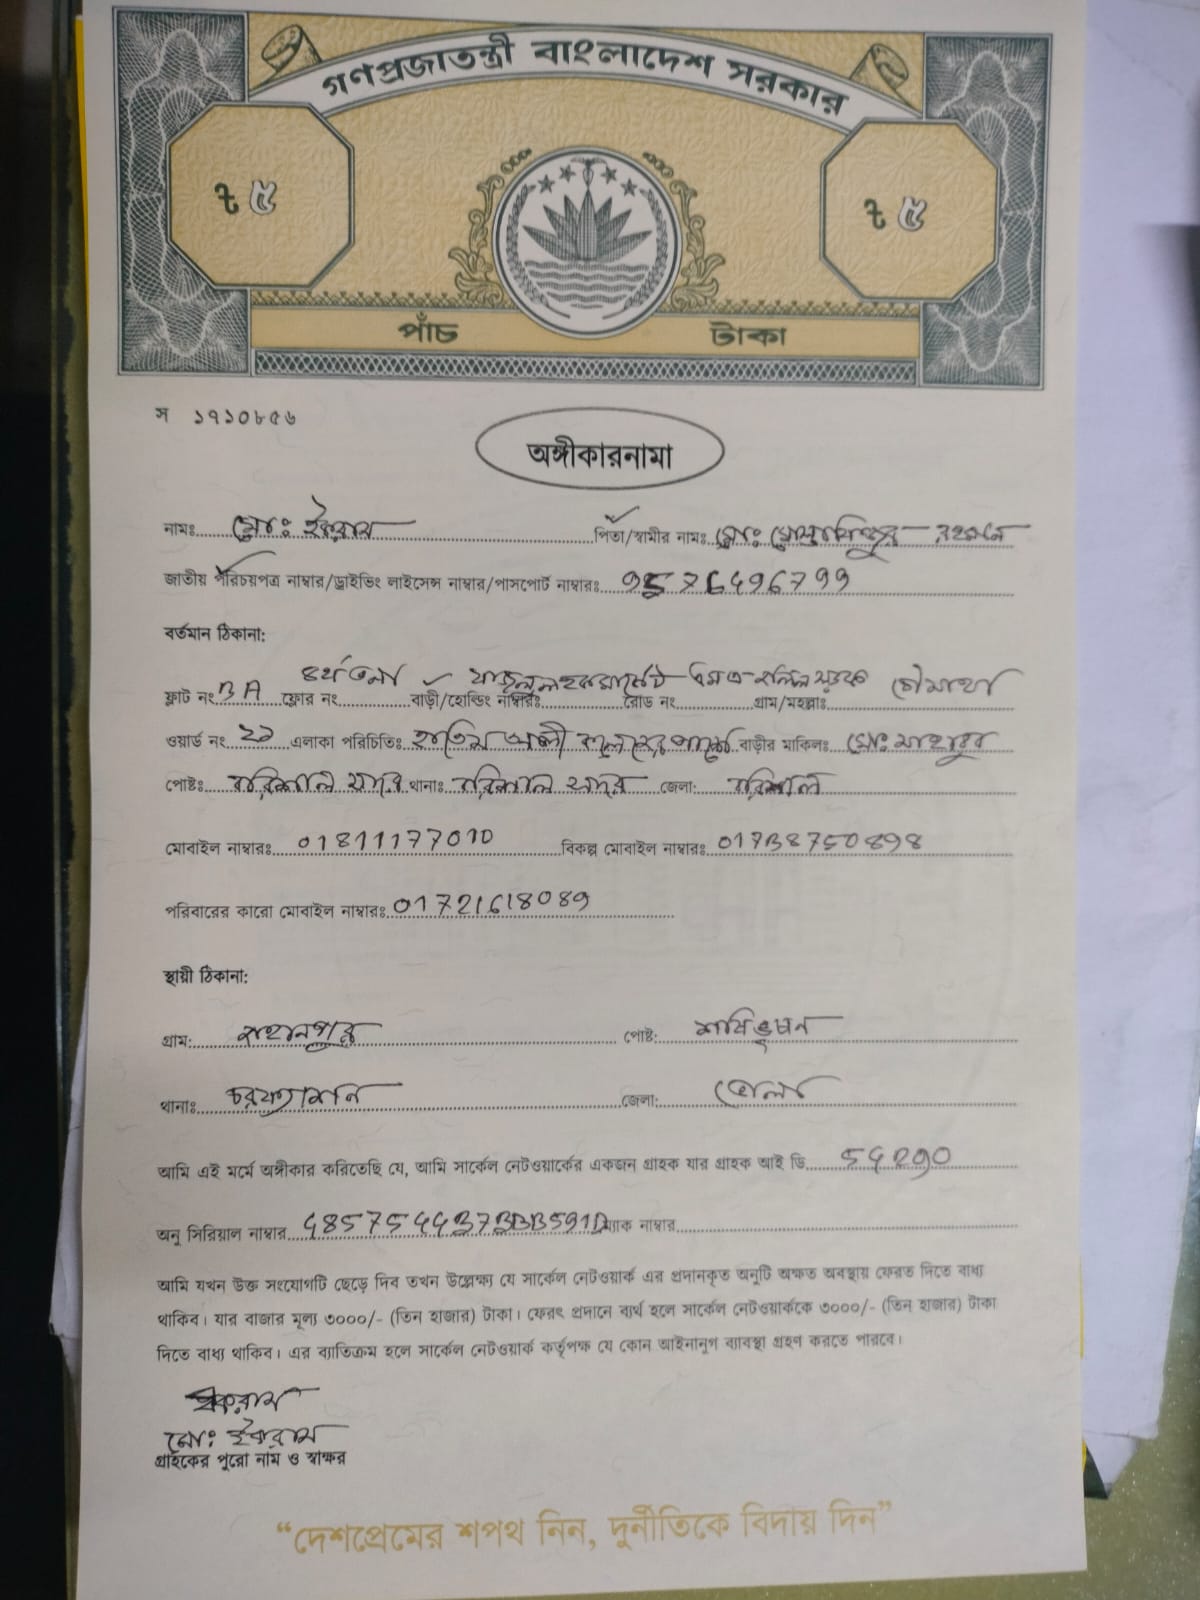 গণপ্রজাতন্ত্রী বাংলাদেশ সরকার
৳ ৫ ৳ ৫
পাঁচ টাকা
স ১৭১০৮৫৬
অঙ্গীকারনামা
নামঃ মোঃ ইকরাম পিতা/স্বামীর নামঃ মোঃ মোস্তাফিজুর রহমান
জাতীয় পরিচয়পত্র নাম্বার/ড্রাইভিং লাইসেন্স নাম্বার/পাসপোর্ট নাম্বারঃ 9576496799
বর্তমান ঠিকানা:
ফ্লাট নং BA ফ্লোর নং ৪র্থ তলা বাড়ী/হোল্ডিং নাম্বারঃ রোড নং গ্রাম/মহল্লাঃ চৌমাথা
ওয়ার্ড নং ২১ এলাকা পরিচিতিঃ হাতেম আলী কলেজের পার্শ্বে বাড়ীর মালিকঃ মোঃ মাহাবুব
পোষ্টঃ বরিশাল সদর থানাঃ বরিশাল সদর জেলা: বরিশাল
মোবাইল নাম্বারঃ 01811177010 বিকল্প মোবাইল নাম্বারঃ 01738750898
পরিবারের কারো মোবাইল নাম্বারঃ 01721618089
স্থায়ী ঠিকানা:
গ্রাম: পোষ্ট: শশিভূষন
থানাঃ চরফ্যাশন জেলা: ভোলা
আমি এই মর্মে অঙ্গীকার করিতেছি যে, আমি সার্কেল নেটওয়ার্কের একজন গ্রাহক যার গ্রাহক আই ডি 54290
অনু সিরিয়াল নাম্বার 485754437BBB591D ম্যাক নাম্বার
আমি যখন উক্ত সংযোগটি ছেড়ে দিব তখন উল্লেক্ষ্য যে সার্কেল নেটওয়ার্ক এর প্রদানকৃত অনুটি অক্ষত অবস্থায় ফেরত দিতে বাধ্য
থাকিব। যার বাজার মূল্য ৩০০০/- (তিন হাজার) টাকা। ফেরৎ প্রদানে ব্যর্থ হলে সার্কেল নেটওয়ার্ককে ৩০০০/- (তিন হাজার) টাকা
দিতে বাধ্য থাকিব। এর ব্যাতিক্রম হলে সার্কেল নেটওয়ার্ক কর্তৃপক্ষ যে কোন আইনানুগ ব্যাবস্থা গ্রহণ করতে পারবে।
ইকরাম
মোঃ ইকরাম
গ্রাহকের পুরো নাম ও স্বাক্ষর
“দেশপ্রেমের শপথ নিন, দুর্নীতিকে বিদায় দিন”